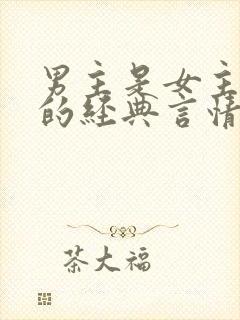 男主是女主
的經典言情
茶大福